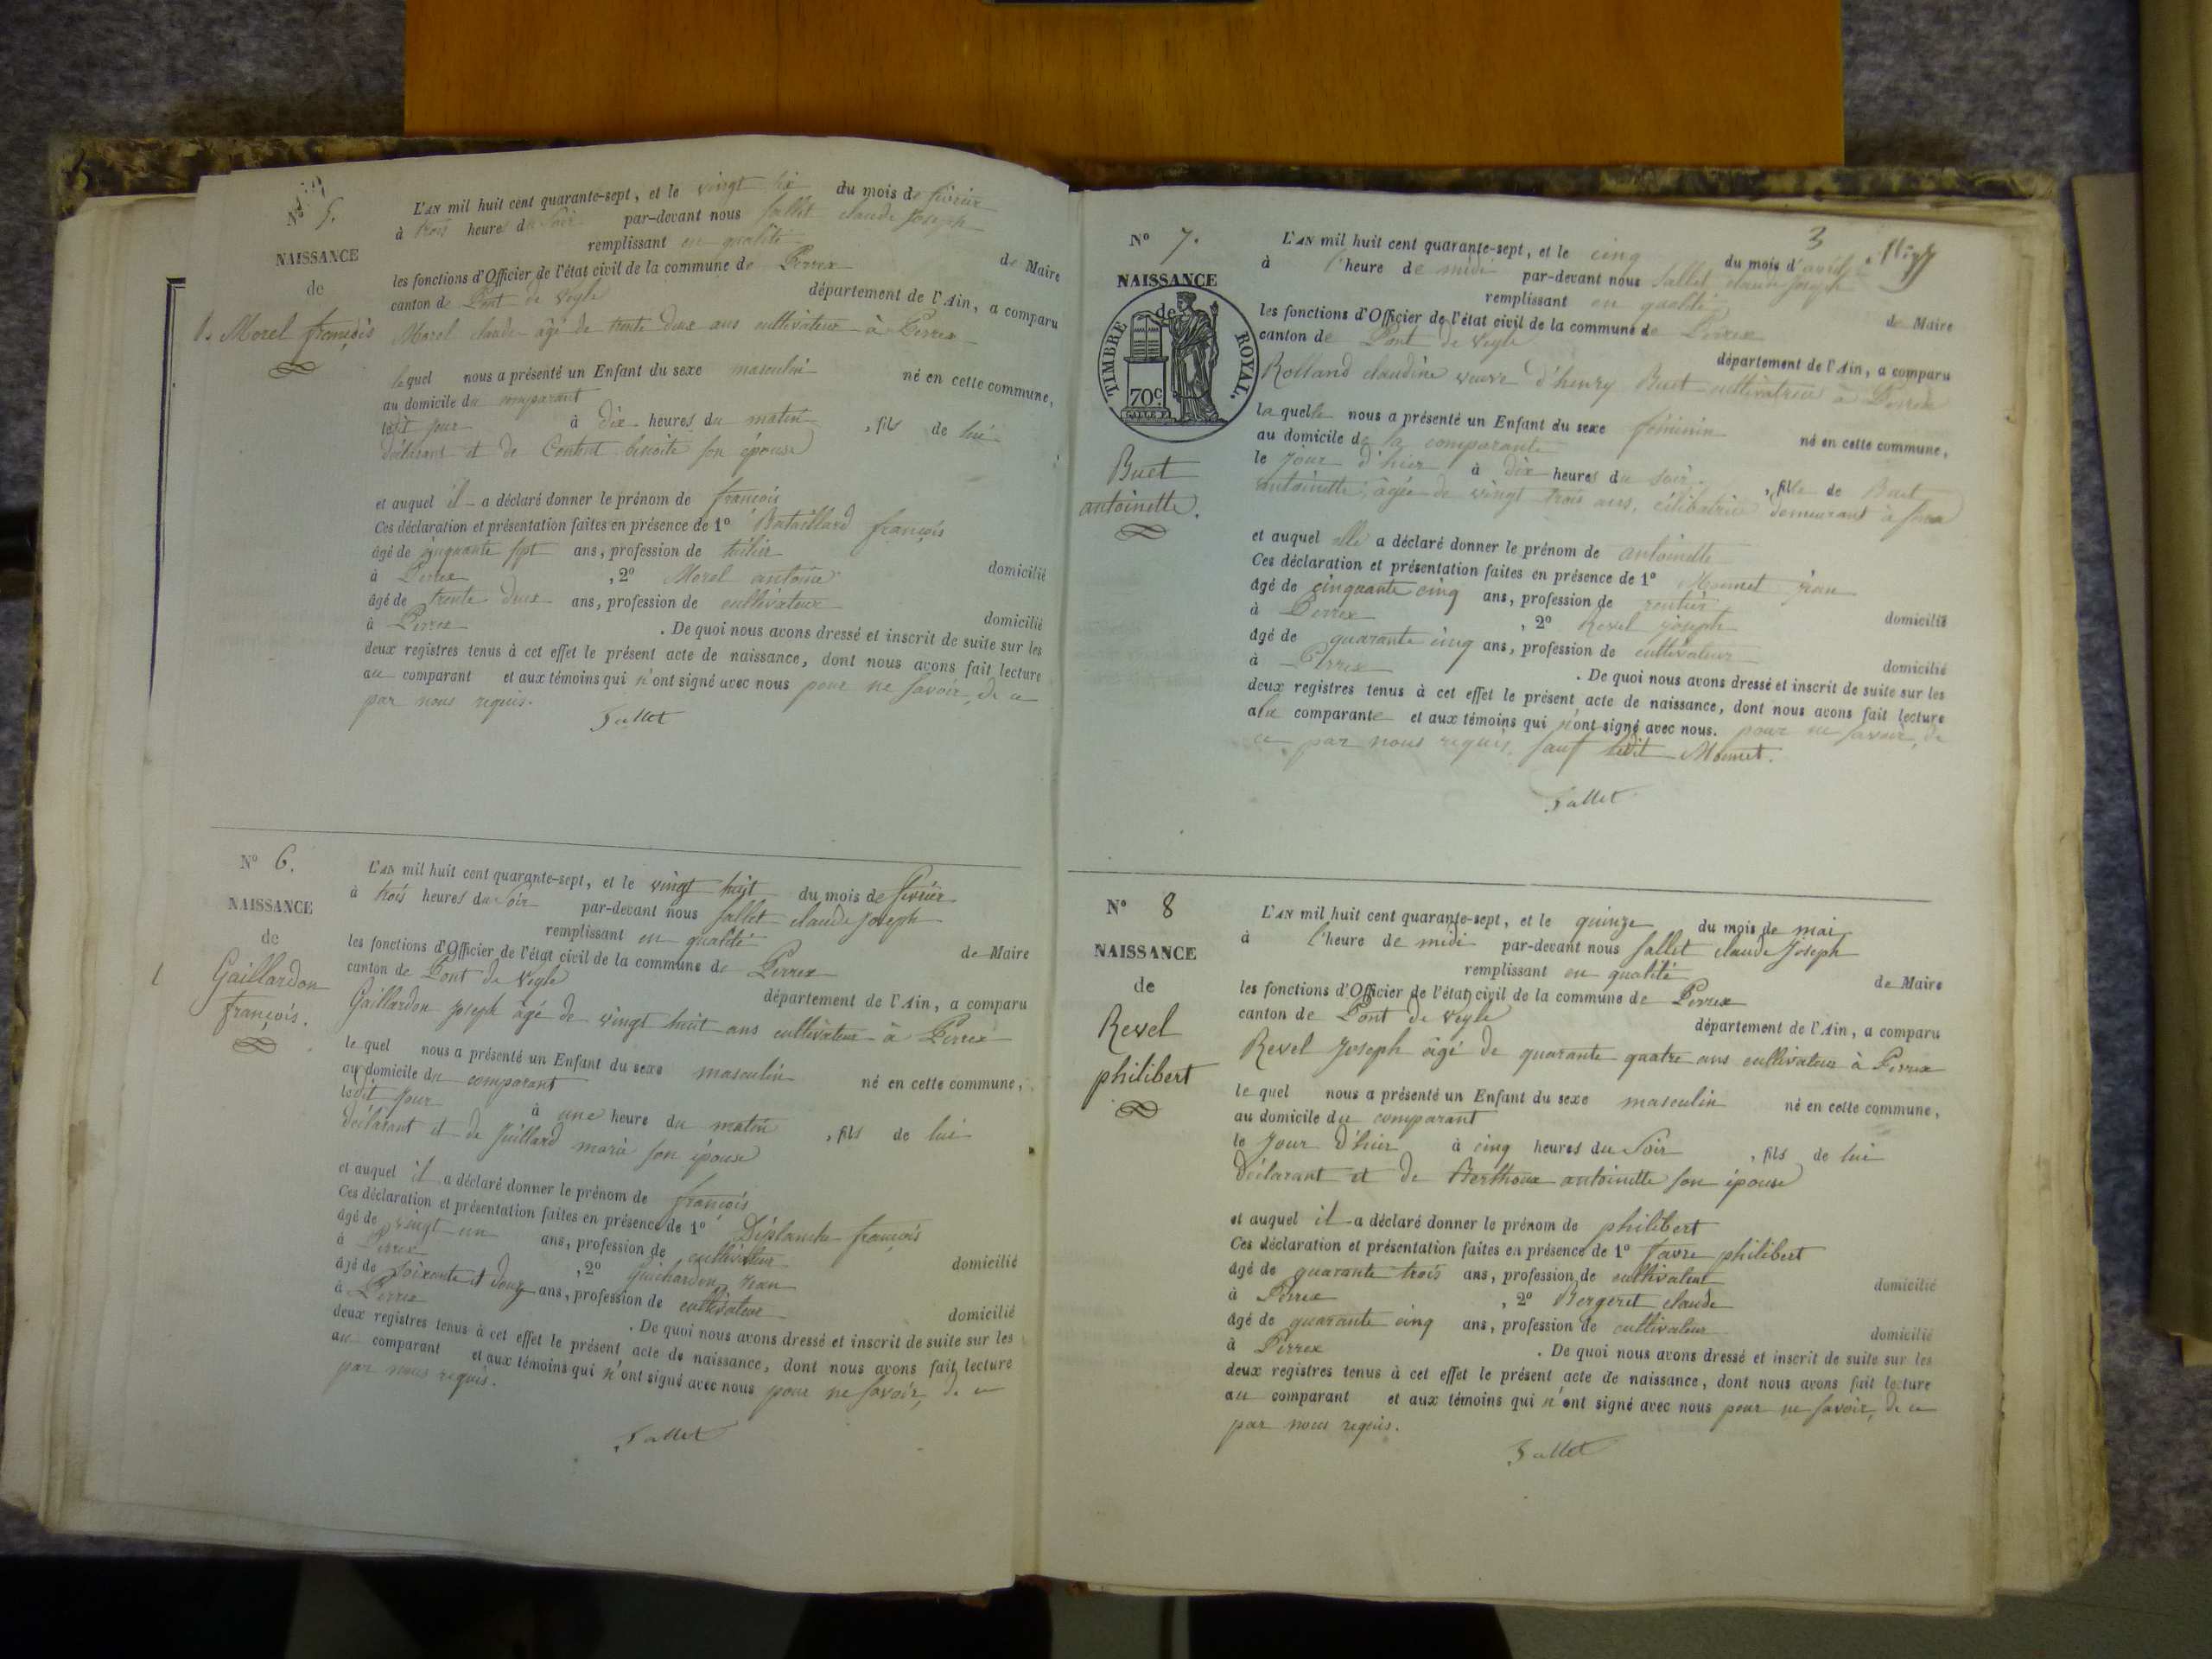 N° 5.
NAISSANCE
de
Morel françois
L'AN mil huit cent quarante-sept, et le vingt six du mois de février
à trois heures du soir par-devant nous Sallet claude Joseph
remplissant en qualité de Maire
les fonctions d'Officier de l'état civil de la commune de Perrex
canton de Pont de Veyle département de l'Ain, a comparu
Morel claude âgé de trente deux ans cultivateur à Perrex
lequel nous a présenté un Enfant du sexe masculin né en cette commune,
au domicile du comparant
ledit jour à dix heures du matin, fils de lui
déclarant et de benoite son épouse
et auquel il a déclaré donner le prénom de françois
Ces déclaration et présentation faites en présence de 1° Bataillard françois
âgé de cinquante sept ans, profession de tuilier domicilié
à Perrex, 2° Morel antoine
âgé de trente deux ans, profession de cultivateur domicilié
à Perrex. De quoi nous avons dressé et inscrit de suite sur les
deux registres tenus à cet effet le présent acte de naissance, dont nous avons fait lecture
au comparant et aux témoins qui n'ont signé avec nous pour ne savoir, de ce
par nous requis.
Sallet
N° 6.
NAISSANCE
de
Gaillardon
françois.
L'AN mil huit cent quarante-sept, et le vingt huit du mois de février
à trois heures du soir par-devant nous Sallet claude Joseph
remplissant en qualité de Maire
les fonctions d'Officier de l'état civil de la commune de Perrex
canton de Pont de Veyle département de l'Ain, a comparu
Gaillardon Joseph âgé de vingt huit ans cultivateur à Perrex
le quel nous a présenté un Enfant du sexe masculin né en cette commune,
au domicile du comparant
ledit jour à une heure du matin, fils de lui
déclarant et de Juillard marie son épouse
et auquel il a déclaré donner le prénom de françois
Ces déclaration et présentation faites en présence de 1° Déplanche françois
âgé de vingt un ans, profession de cultivateur domicilié
à Perrex, 2° Guichardon Jean
âgé de soixante et douze ans, profession de cultivateur domicilié
à Perrex. De quoi nous avons dressé et inscrit de suite sur les
deux registres tenus à cet effet le présent acte de naissance, dont nous avons fait lecture
au comparant et aux témoins qui n'ont signé avec nous pour ne savoir, de ce
par nous requis.
Sallet
3
N° 7.
NAISSANCE
de
TIMBRE ROYAL.
70c.
Buet
antoinette.
L'AN mil huit cent quarante-sept, et le cinq du mois d'avril
à l'heure de midi par-devant nous Sallet claude Joseph
remplissant en qualité de Maire
les fonctions d'Officier de l'état civil de la commune de Perrex
canton de Pont de Veyle département de l'Ain, a comparu
Rolland claudine veuve d'henry Buet cultivatrice à Perrex
la quelle nous a présenté un Enfant du sexe féminin né en cette commune,
au domicile de la comparante
le jour d'hier à dix heures du soir, fille de Buet
antoinette, âgée de vingt trois ans, célibatrice demeurant à
et auquel elle a déclaré donner le prénom de antoinette
Ces déclaration et présentation faites en présence de 1° Monnet jean
âgé de cinquante cinq ans, profession de rentier domicilié
à Perrex, 2° Revel joseph
âgé de quarante cinq ans, profession de cultivateur domicilié
à Perrex. De quoi nous avons dressé et inscrit de suite sur les
deux registres tenus à cet effet le présent acte de naissance, dont nous avons fait lecture
à la comparante et aux témoins qui n'ont signé avec nous. pour ne savoir, de
ce par nous requis, sauf ledit Monnet.
Sallet
N° 8
NAISSANCE
de
Revel
philibert
L'AN mil huit cent quarante-sept, et le quinze du mois de mai
à l'heure de midi par-devant nous Sallet claude Joseph
remplissant en qualité de Maire
les fonctions d'Officier de l'état civil de la commune de Perrex
canton de Pont de Veyle département de l'Ain, a comparu
Revel Joseph âgé de quarante quatre ans cultivateur à Perrex
le quel nous a présenté un Enfant du sexe masculin né en cette commune,
au domicile du comparant
le jour d'hier à cinq heures du soir, fils de lui
déclarant et de Berthoux antoinette son épouse
et auquel il a déclaré donner le prénom de philibert
Ces déclaration et présentation faites en présence de 1° favre philibert
âgé de quarante trois ans, profession de cultivateur domicilié
à Perrex, 2° Bergeret claude
âgé de quarante cinq ans, profession de cultivateur domicilié
à Perrex. De quoi nous avons dressé et inscrit de suite sur les
deux registres tenus à cet effet le présent acte de naissance, dont nous avons fait lecture
au comparant et aux témoins qui n'ont signé avec nous pour ne savoir, de ce
par nous requis.
Sallet